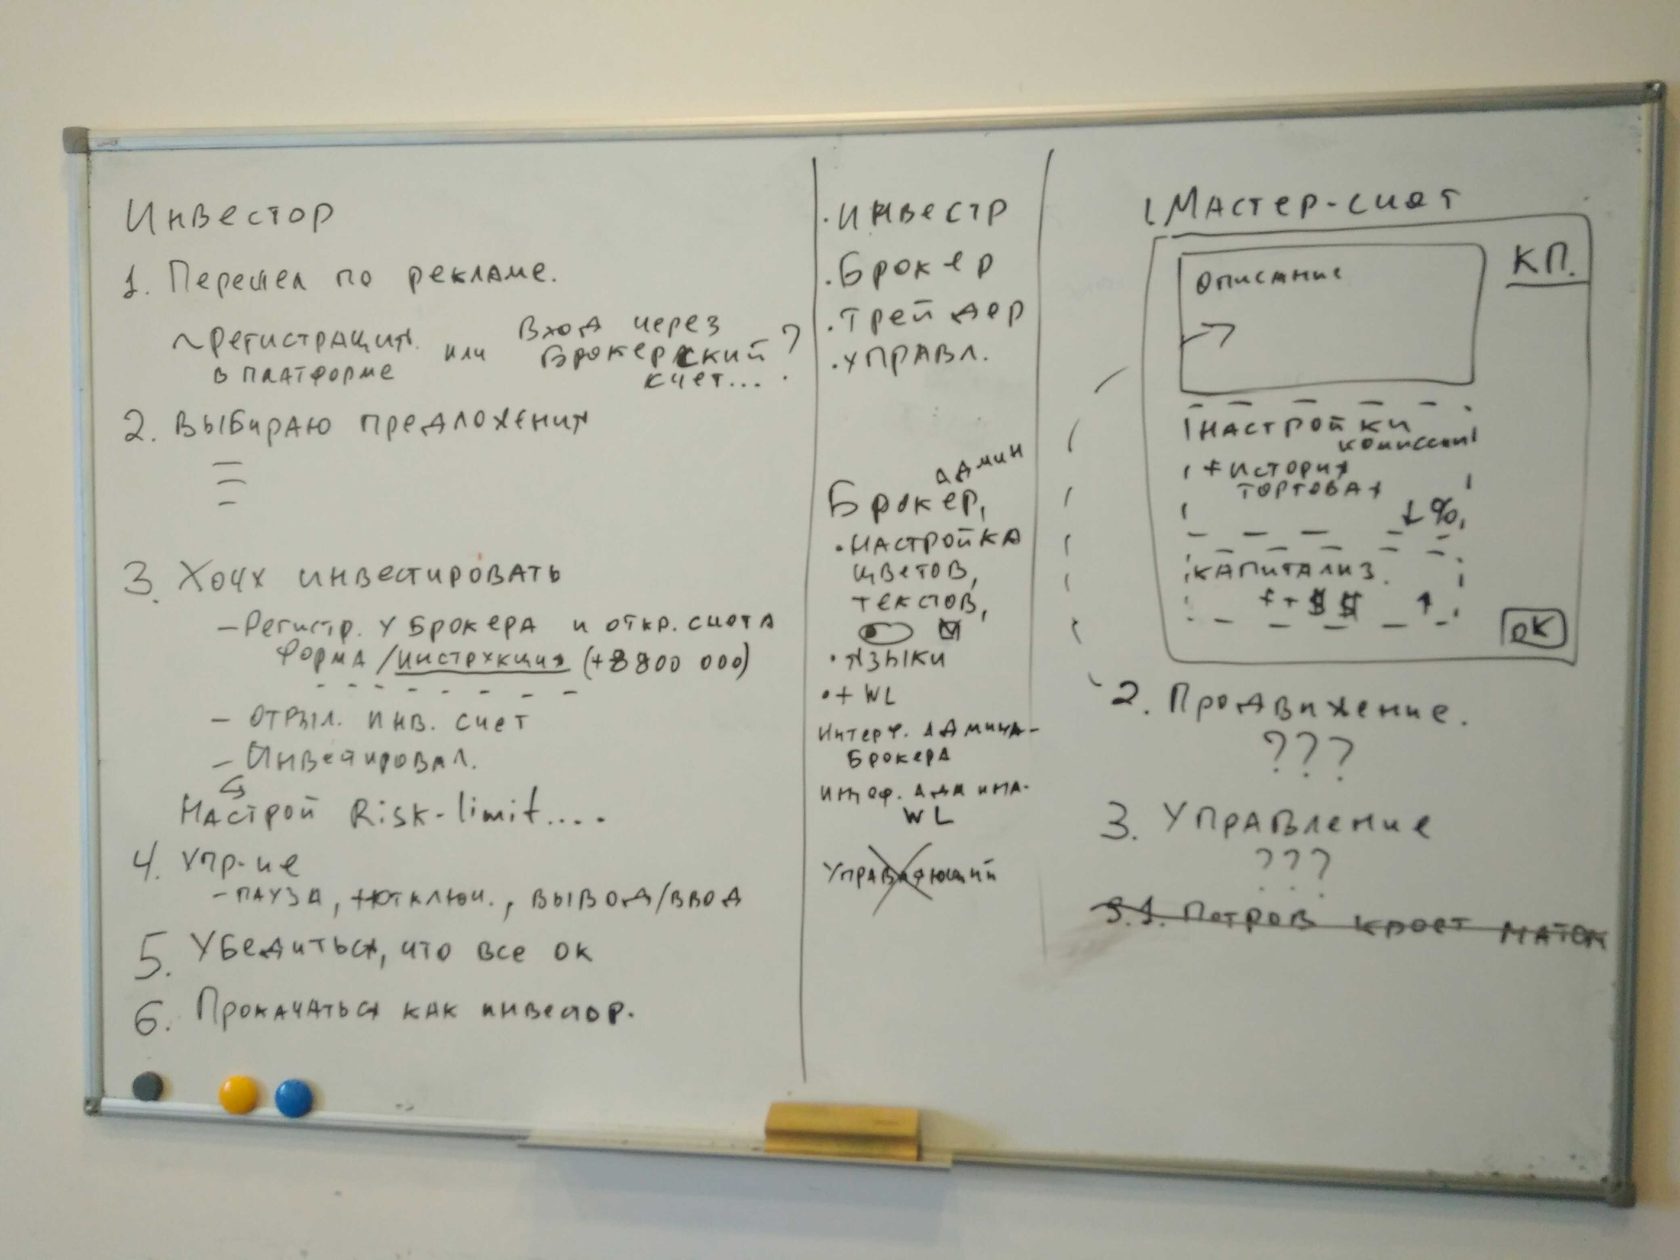 Инвестор
1. Перешел по рекламе.
~ Регистрация или Вход через
в платформе Брокерский ?
счет...
2. Выбираю предложения
3. Хочу инвестировать
- Регистр. у Брокера и откр. счета
форма / инструкция (+8800 000)
- откыл. инв. счет
- Инвестировал.
Настрой Risk-limit....
4. Упр-ие
- пауза, отключ., вывод/ввод
5. Убедиться, что все ок
6. Прокачаться как инвестор.
· инвестр
· Брокер
· трейдер
· управл.
админ
Брокер,
· настройка
цветов,
текстов,
· языки
· + WL
Интерф. админа-
Брокера
админа-
WL
Управляющий
1. Мастер-счет
КП.
описание
настройки
комиссии
+ история
торговая
↓ %
капитализ.
++ $ $ ↑
ок
2. Продвижение.
???
3. Управление
???
3.1. Петров кроет маток